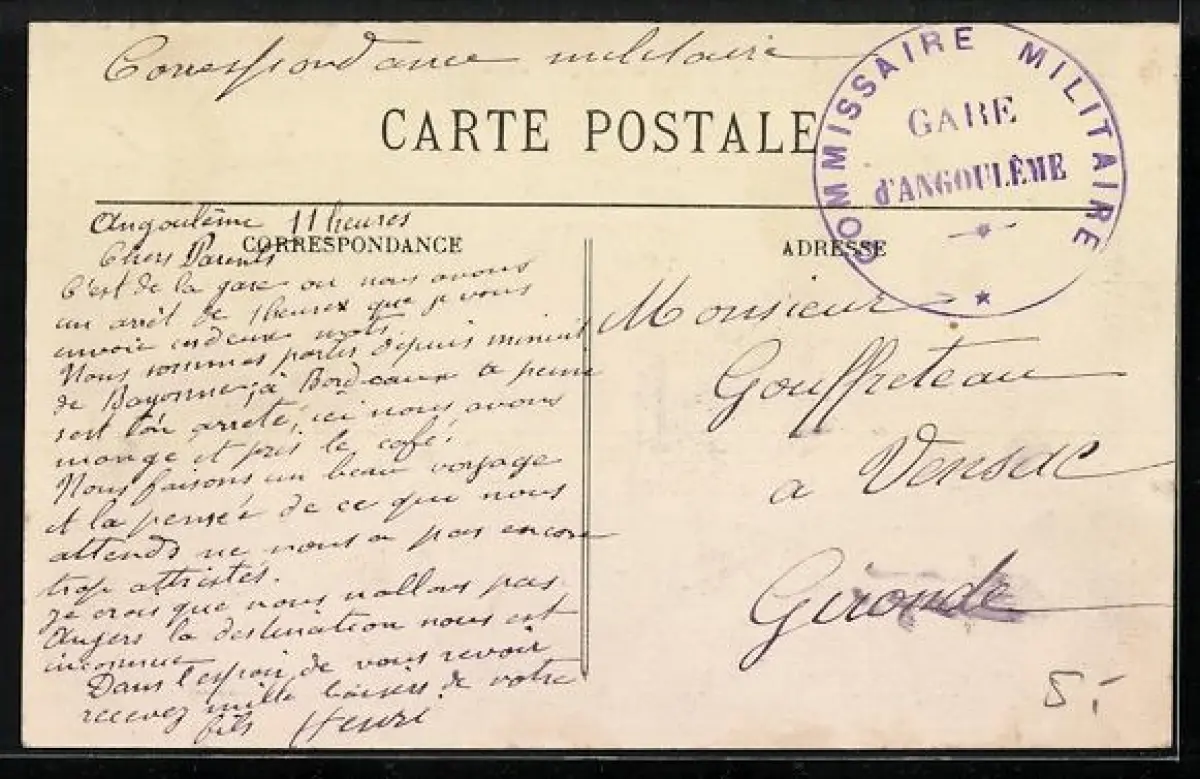 Correspondance militaire
CARTE POSTALE
COMMISSAIRE MILITAIRE
GARE
d'ANGOULÊME
Angoulême 11 heures
CORRESPONDANCE
Chers Parents
C'est de la gare ou nous avons
un arrêt de heures que je vous
envoie ces deux mots
Nous sommes partis depuis minuit
de Bayonne, à Bordeaux a peine
sest l'on arreté, ici nous avons
mangé et pris le café.
Nous faisons un beau voyage
et la pensée de ce que nous
attends ne nous a pas encore
trop attristés.
Je crois que nous nallons pas
Angers la destination nous est
inconnue
Dans l'espoir de vous revoir
recevez mille baisers de votre
fils Henri
ADRESSE
Monsieur
Gouffreteau
a Vensac
Gironde
5.-